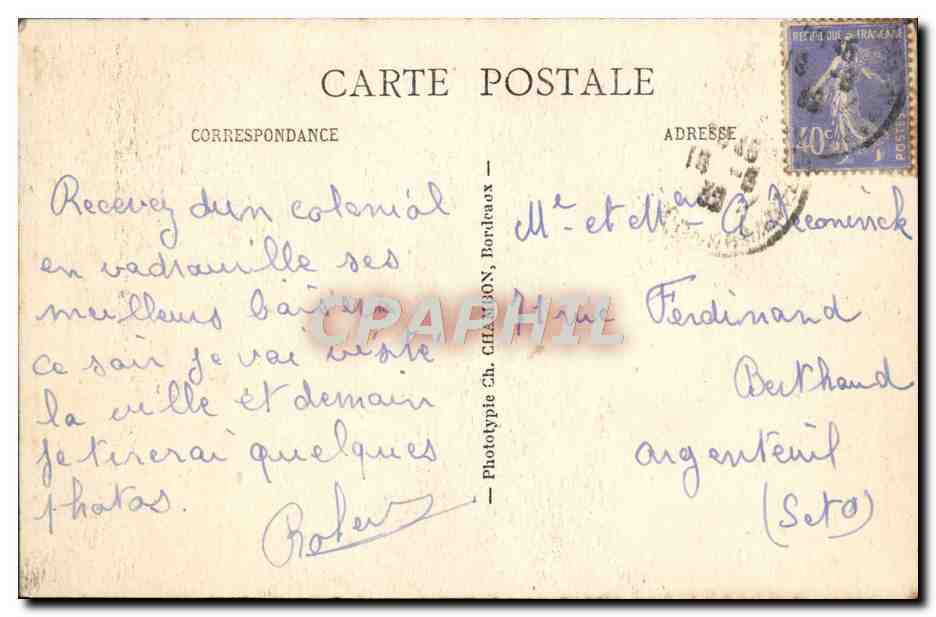 CARTE POSTALE
CORRESPONDANCE
ADRESSE
REPUBLIQUE FRANÇAISE
40c
POSTES
Recevez d'un colonial
en vadrouille ses
meilleurs baisers
ce soir je vai visite
la ville et demain
je tirerai quelques
photos.
Robert
— Phototypie Ch. CHAMBON, Bordeaux —
Mr et Mme A Deconinck
rue Ferdinand
Berthaud
argenteuil
(Set O)
CPAPHIL